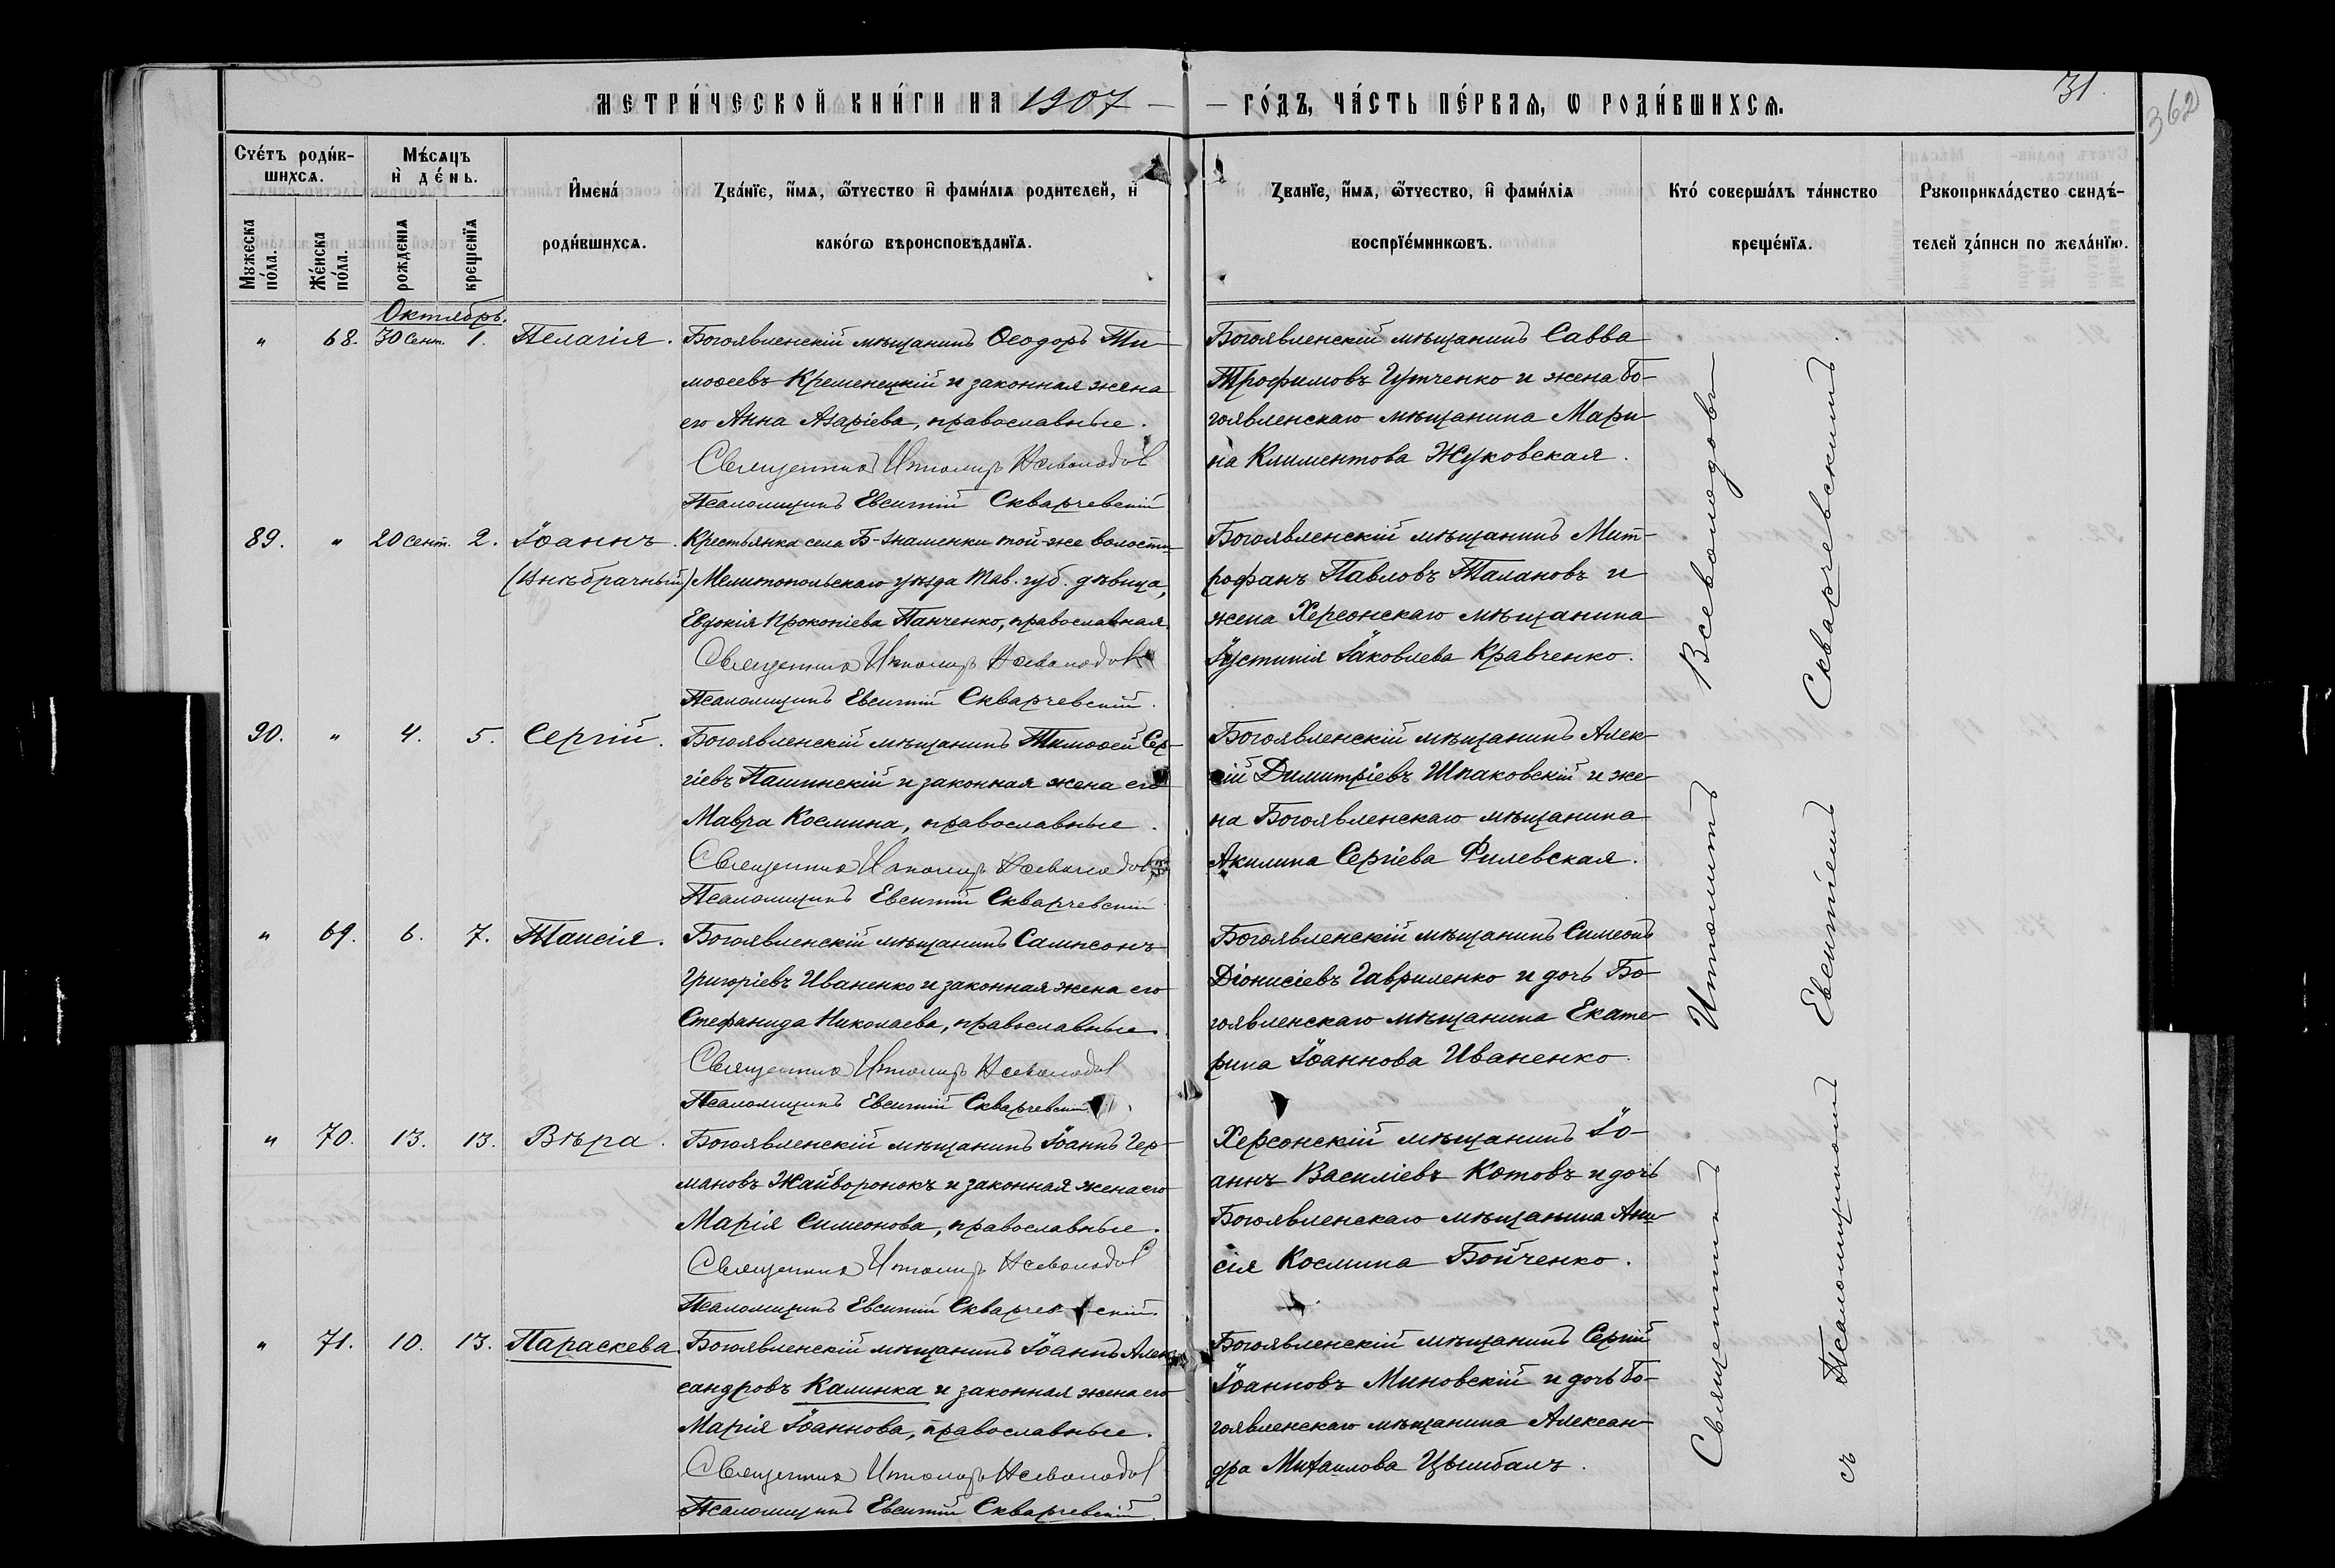 МЕТРИ́ЧЕСКОЙ КНИ́ГИ НА 1907 — — ГО́ДЪ, ЧА́СТЬ ПЕ́РВАѦ, Ѡ РОДИ́ВШИХСѦ.
31.
362
Сче́тъ роди́в-
шихсѧ.
Мѣ́сѧцъ
и҆ де́нь.
И҆мена́
роди́вшихсѧ.
Зва́нїе, и҆́мѧ, ѻ҆́тчество и҆ фами́лїа родителей, и҆
како́гѡ вѣроисповѣданїѧ.
Званїе, и҆́мѧ, ѻ҆́тчество, и҆ фами́лїа
воспрїе́мникѡвъ.
Кто́ совершáлъ та́инство
креще́нїѧ.
Рꙋкоприкла́дство свидѣ́-
телей за́писи по жела́нїю.
Мꙋжеска
по́ла.
Же́нска
по́ла.
рожденїѧ
крещенїѧ
Октябрь.
" 68. 30 Сент. 1. Пелагія. Богоявленскій мѣщанинъ Ѳеодоръ Ти-
моѳеевъ Кременецкій и законная жена
его Анна Азаріева, православные.
Священникъ Ипполитъ Всеволодов
Псаломщикъ Евсигній Скварчевскій
Богоявленскій мѣщанинъ Савва
Трофимовъ Гутченко и жена Бо-
гоявленскаго мѣщанина Мари-
на Климентова Жуковская.
89. " 20 сент. 2. Іоаннъ. Крестьянка села Б-Знаменки той-же волости
(Внѣбрачный) Мелитопольскаго уѣзда Тав. губ. дѣвица,
Евдокія Прокопіева Панченко, православная.
Священникъ Ипполитъ Всеволодов
Псаломщикъ Евсигній Скварчевскій.
Богоявленскій мѣщанинъ Мит-
рофанъ Павловъ Талановъ и
жена Херсонскаго мѣщанина
Іустинія Іаковлева Кравченко.
90. " 4. 5. Сергій. Богоявленскій мѣщанинъ Тимоѳей Сер-
гіевъ Пашинскій и законная жена его
Мавра Космина, православные.
Священникъ Ипполитъ Всеволодов
Псаломщикъ Евсигній Скварчевскій
Богоявленскій мѣщанинъ Алек-
сій Димитріевъ Шпаковскій и же-
на Богоявленскаго мѣщанина
Акилина Сергіева Филевская.
" 69. 6. 7. Таисія. Богоявленскій мѣщанинъ Сампсонъ
Григоріевъ Иваненко и законная жена его
Стефанида Николаева, православные.
Священникъ Ипполитъ Всеволодов
Псаломщикъ Евсигній Скварчевскій
Богоявленскій мѣщанинъ Симеонъ
Діонисіевъ Гавриленко и дочь Бо-
гоявленскаго мѣщанина Екате-
рина Іоаннова Иваненко.
" 70. 13. 13. Вѣра. Богоявленскій мѣщанинъ Іоаннъ Гер-
мановъ Жайворонокъ и законная жена его
Марія Симеонова, православные.
Священникъ Ипполитъ Всеволодов
Псаломщикъ Евсигній Скварчевскій.
Херсонскій мѣщанинъ Іо-
аннъ Василіевъ Котовъ и дочь
Богоявленскаго мѣщанина Ани-
сія Космина Бойченко.
" 71. 10. 13. Параскева. Богоявленскій мѣщанинъ Іоаннъ Алек-
сандровъ Калинка и законная жена его
Марія Іоаннова, православные.
Священникъ Ипполитъ Всеволодов
Псаломщикъ Евсигній Скварчевскій.
Богоявленскій мѣщанинъ Сергій
Іоанновъ Миновскій и дочь Бо-
гоявленскаго мѣщанина Алексан-
дра Михаилова Цымбалъ.
Священникъ Ипполитъ Всеволодовъ
съ Псаломщикомъ Евсигніемъ Скварчевскимъ.